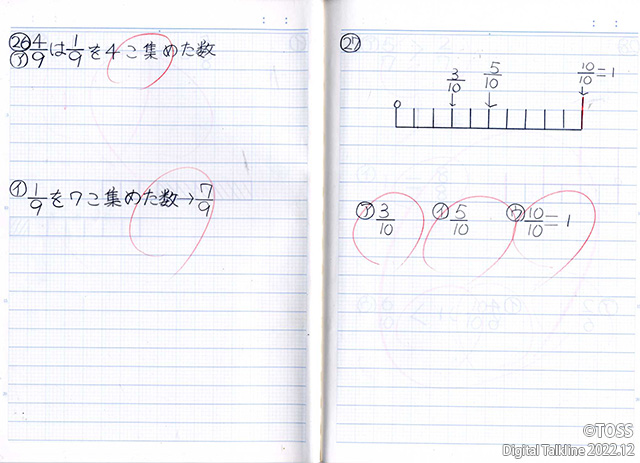 ㉖
㋐ 4/9は1/9を4こ集めた数
㋑ 1/9を7こ集めた数→7/9
㉗
3/10 5/10 10/10=1
0
㋐ 3/10 ㋑ 5/10 ㋒ 10/10=1
©TOSS
Digital Talkline 2022.12